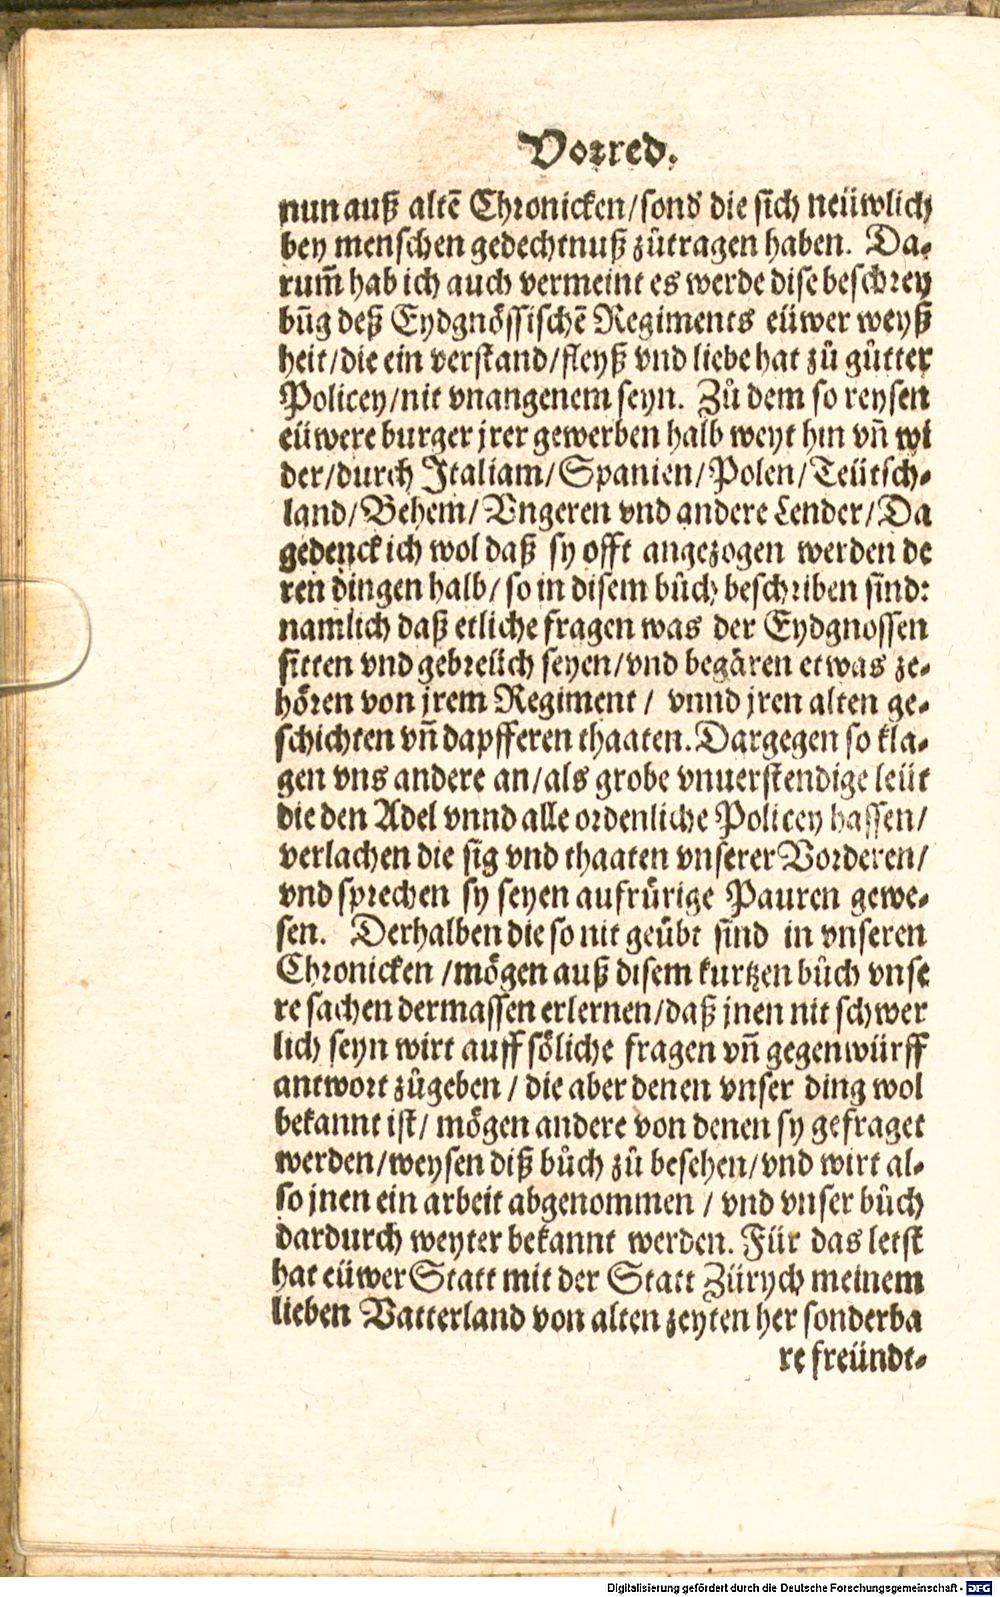 Vorred.
nun auß altẽ Chronicken/sond' die sich neüwlich
bey menschen gedechtnuß zůtragen haben. Da-
rum̃ hab ich auch vermeint es werde dise beschrey
bũg deß Eydgnössischẽ Regiments eüwer weyß
heit/die ein verstand/fleyß vnd liebe hat zů gůtter
Policey/nit vnangenem seyn. Zů dem so reysen
eüwere burger jrer gewerben halb weyt hin vñ wi
der/durch Italiam/Spanien/Polen/Teütsch-
land/Behem/Vngeren vnd andere Lender/Da
gedenck ich wol daß sy offt angezogen werden de
ren dingen halb/so in disem bůch beschriben sind:
namlich daß etliche fragen was der Eydgnossen
sitten vnd gebreüch seyen/vnd begären etwas ze-
hören von jrem Regiment/ vnnd jren alten ge-
schichten vñ dapfferen thaaten. Dargegen so kla-
gen vns andere an/als grobe vnuerstendige leüt
die den Adel vnnd alle ordenliche Policey hassen/
verlachen die sig vnd thaaten vnserer Vorderen/
vnd sprechen sy seyen aufrürige Pauren gewe-
sen. Derhalben die so nit geübt sind in vnseren
Chronicken/mögen auß disem kurtzen bůch vnse
re sachen dermassen erlernen/daß jnen nit schwer
lich seyn wirt auff söliche fragen vñ gegenwürff
antwort zůgeben/die aber denen vnser ding wol
bekannt ist/ mögen andere von denen sy gefraget
werden/weysen diß bůch zů besehen/vnd wirt al-
so jnen ein arbeit abgenommen/vnd vnser bůch
dardurch weyter bekannt werden. Für das letst
hat eüwer Statt mit der Statt Zürych meinem
lieben Vatterland von alten zeyten her sonderba
re freündt-
Digitalisierung gefördert durch die Deutsche Forschungsgemeinschaft - DFG